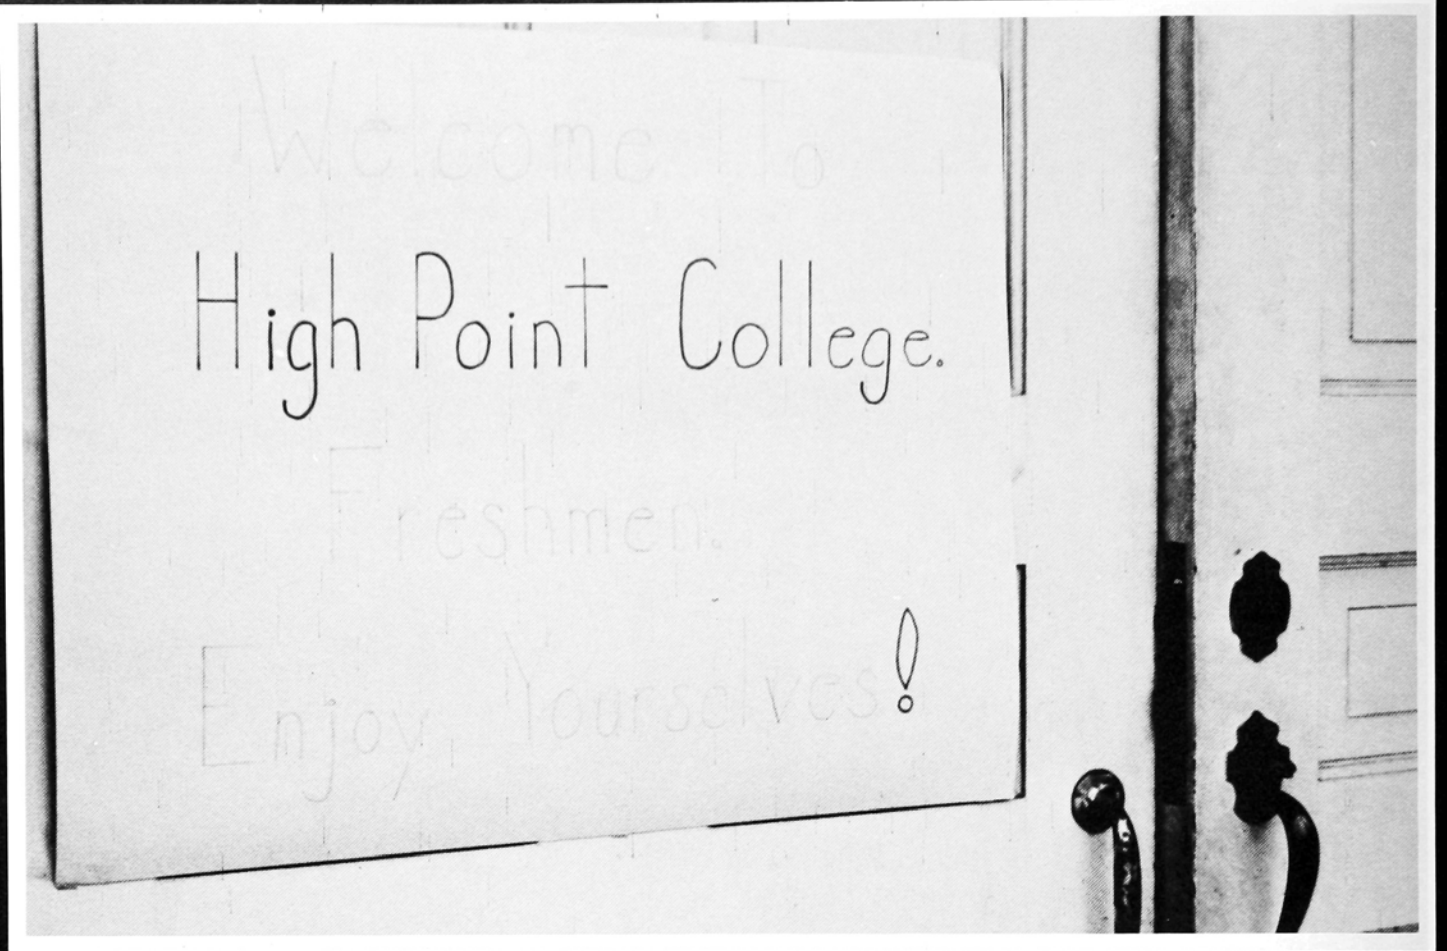 Welcome To
High Point College.
Freshmen.
Enjoy, Yourselves!